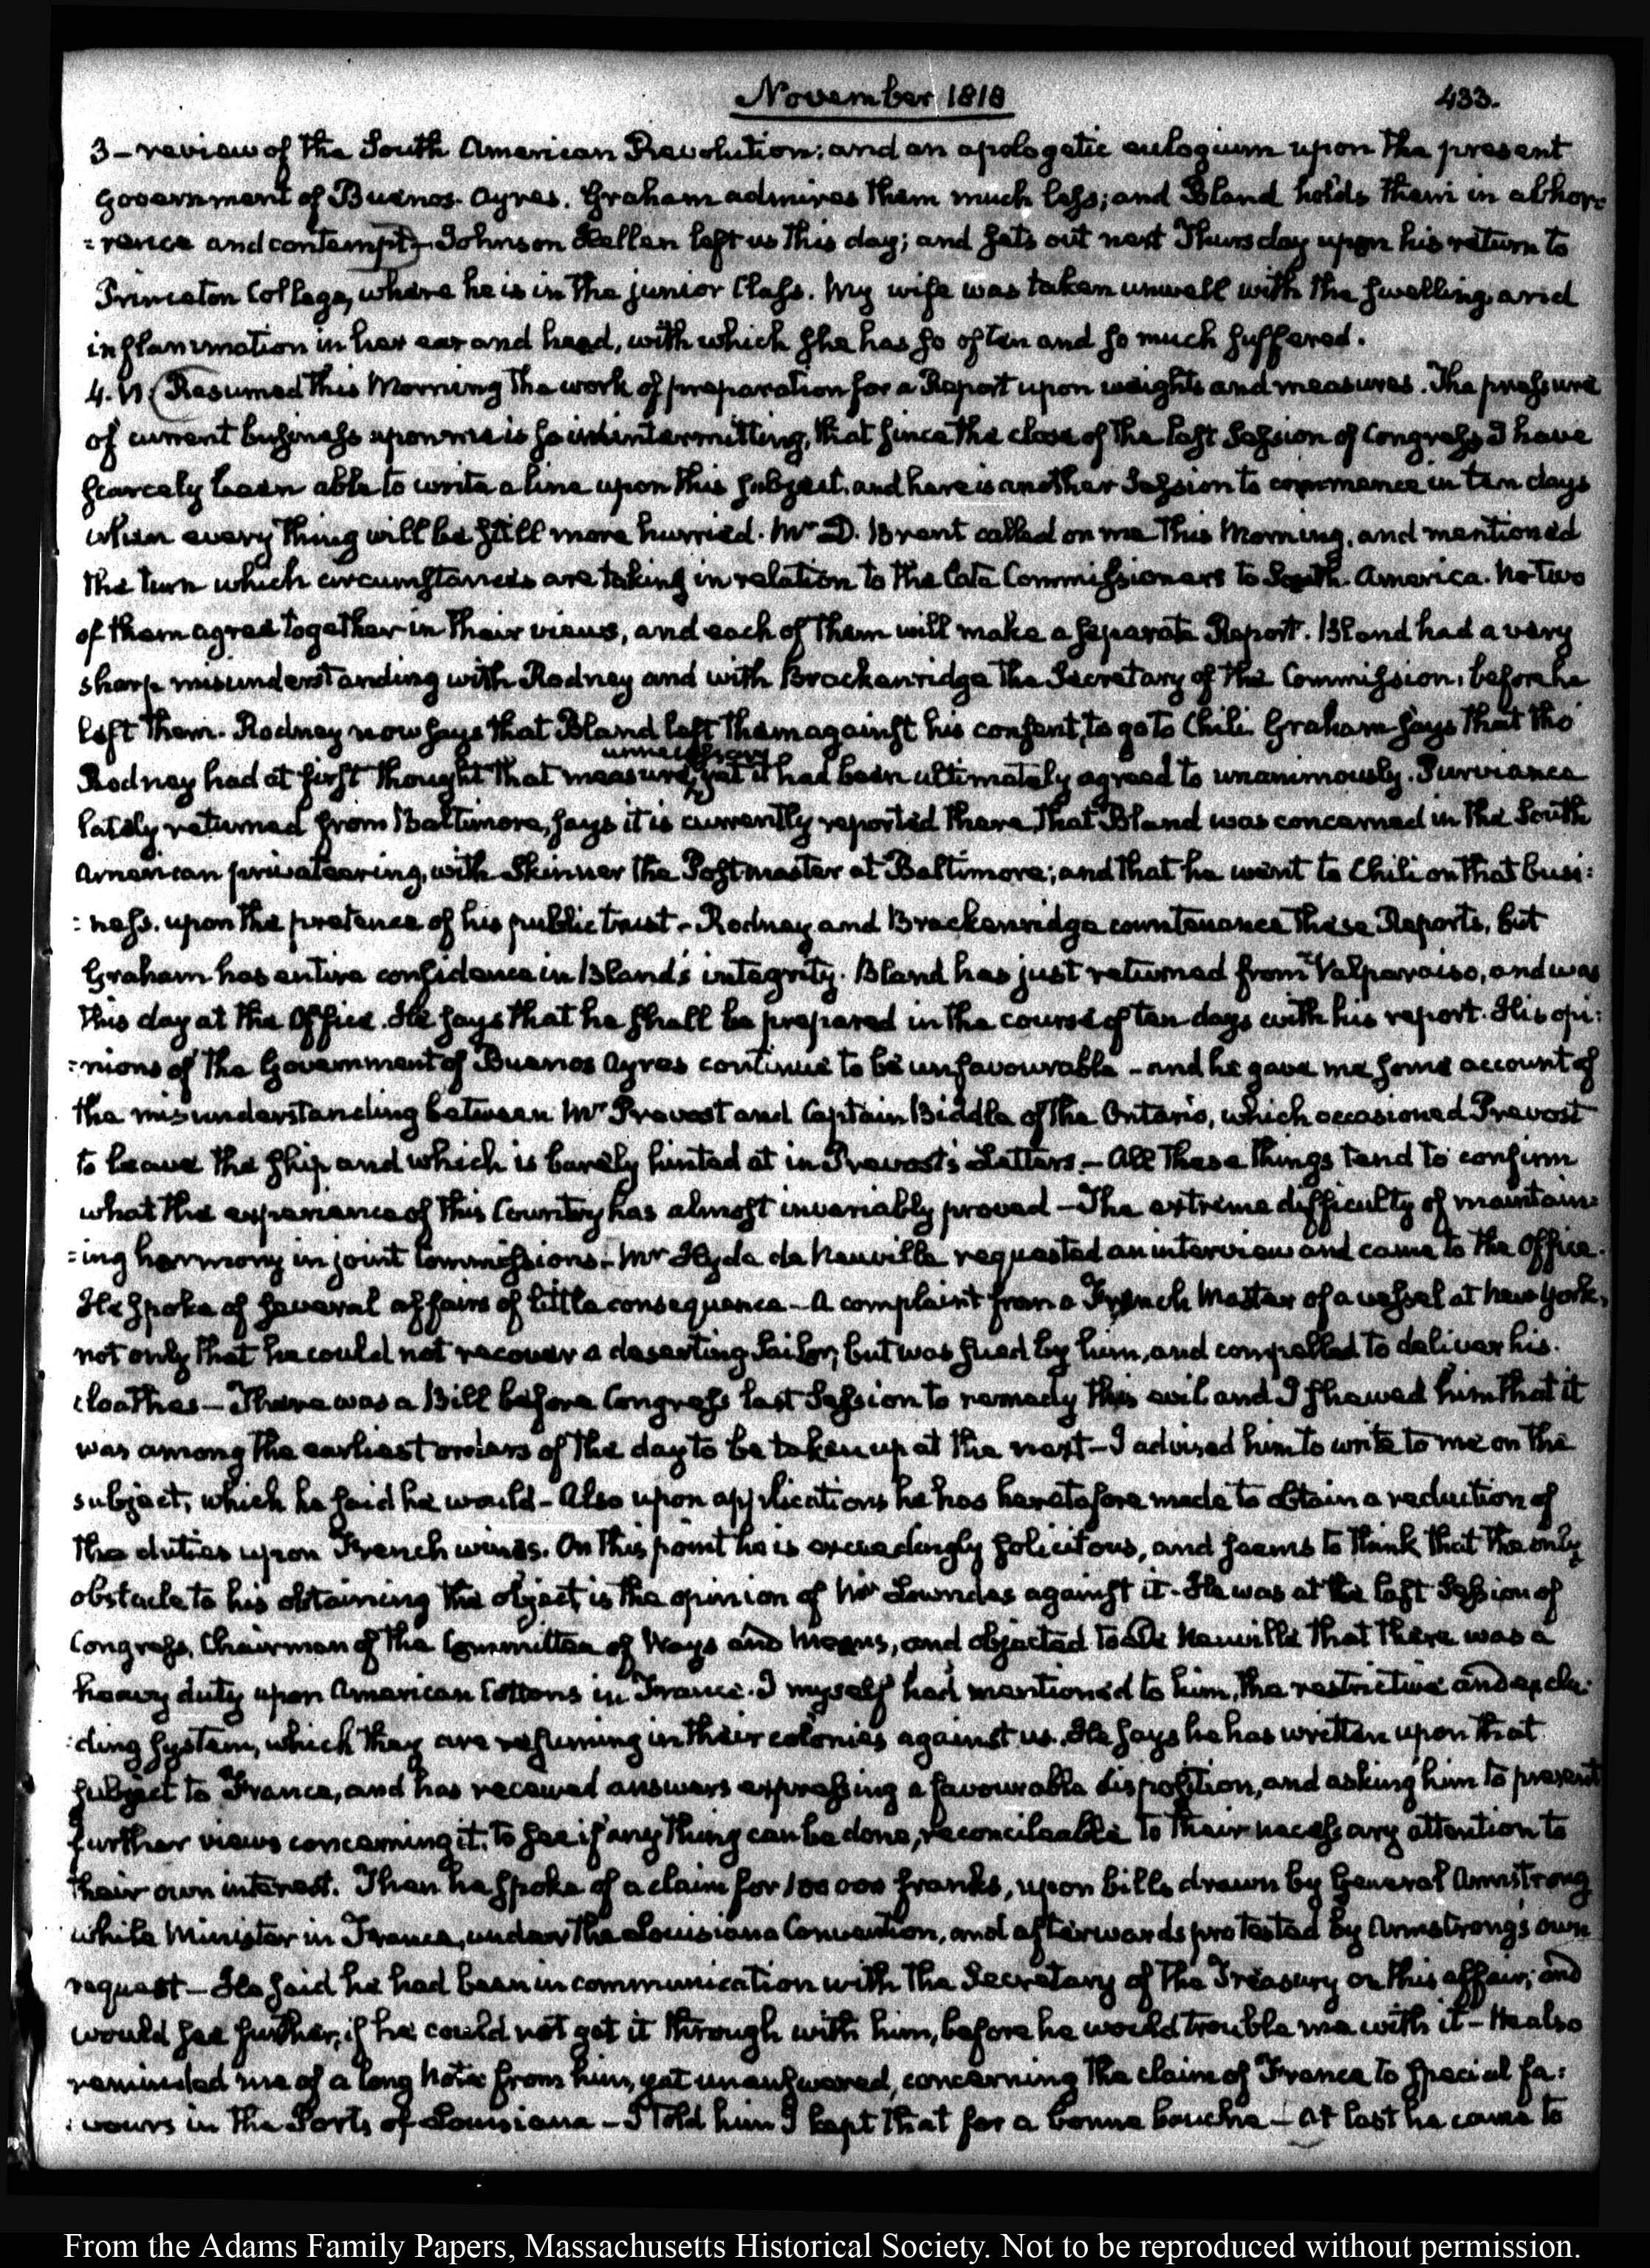 November 1818
433.
3 - review of the South American Revolution; and an apologetic eulogium upon the present
government of Buenos-Ayres. Graham admires them much less; and Bland holds them in abhor:
:rence and contempt - Johnson Hellen left us this day; and sets out next Thursday upon his return to
Princeton College, where he is in the junior Class. My wife was taken unwell with the swelling and
inflammation in her ear and head, with which she has so often and so much suffered.
4. VI. Resumed this Morning the work of preparation for a Report upon weights and measures. The pressure
of current business upon me is so unintermitting, that since the close of the last Session of Congress I have
scarcely been able to write a line upon this subject, and here is another Session to commence in ten days
when every thing will be still more hurried. Mr D. Brent called on me this Morning, and mentioned
the turn which circumstances are taking in relation to the late Commissioners to South-America. No two
of them agree together in their views, and each of them will make a separate Report. Bland had a very
sharp misunderstanding with Rodney and with Brackenridge the Secretary of the Commission, before he
left them. Rodney now says that Bland left them against his consent, to go to Chili. Graham says that tho'
unnecessary
Rodney had at first thought that measure, yet it had been ultimately agreed to unanimously. Purviance
lately returned from Baltimore, says it is currently reported there, that Bland was concerned in the South
American privateering, with Skinner the Postmaster at Baltimore; and that he went to Chili on that busi:
:ness. upon the pretence of his public trust - Rodney and Brackenridge countenance these Reports, but
Graham has entire confidence in Bland's integrity. Bland has just returned from Valparaiso, and was
this day at the Office. He says that he shall be prepared in the course of ten days with his report. His opi:
:nions of the Government of Buenos Ayres continue to be unfavourable - and he gave me some account of
the misunderstanding between Mr Prevost and Captain Biddle of the Ontario, which occasioned Prevost
to leave the ship and which is barely hinted at in Prevost's Letters. - All these things tend to confirm
what the experience of this Country has almost invariably proved - The extreme difficulty of maintain:
:ing harmony in joint Commissions - Mr Hyde de Neuville requested an interview and came to the Office.
He spoke of several affairs of little consequence - A complaint from a French Master of a vessel at New York,
not only that he could not recover a deserting Sailor, but was sued by him, and compelled to deliver his
cloathes - There was a Bill before Congress last Session to remedy this evil and I shewed him that it
was among the earliest orders of the day to be taken up at the next - I advised him to write to me on the
subject, which he said he would - Also upon applications he has heretofore made to obtain a reduction of
the duties upon French wines. On this point he is exceedingly solicitous, and seems to think that the only
obstacle to his obtaining the object, is the opinion of Mr Lowndes against it. He was at the last Session of
Congress, Chairman of the Committee of Ways and Means, and objected to De Neuville that there was a
heavy duty upon American Cottons in France. I myself had mentioned to him, the restrictive and exclu:
:ding system, which they are resuming in their colonies against us. He says he has written upon that
subject to France, and has received answers expressing a favourable disposition, and asking him to present
further views concerning it, to see if any thing can be done, reconcileable to their necessary attention to
their own interest. Then he spoke of a claim for 100000 franks, upon bills drawn by General Armstrong
while Minister in France, under the Louisiana Convention, and afterwards protested by Armstrong's own
request - He said he had been in communication with the Secretary of the Treasury on this affair; and
would see further, if he could not get it through with him, before he would trouble me with it - He also
reminded me of a long Note from him, yet unanswered, concerning the claim of France to special fa:
:vours in the Ports of Louisiana - I told him I kept that for a bonne bouche - At last he came to
From the Adams Family Papers, Massachusetts Historical Society. Not to be reproduced without permission.